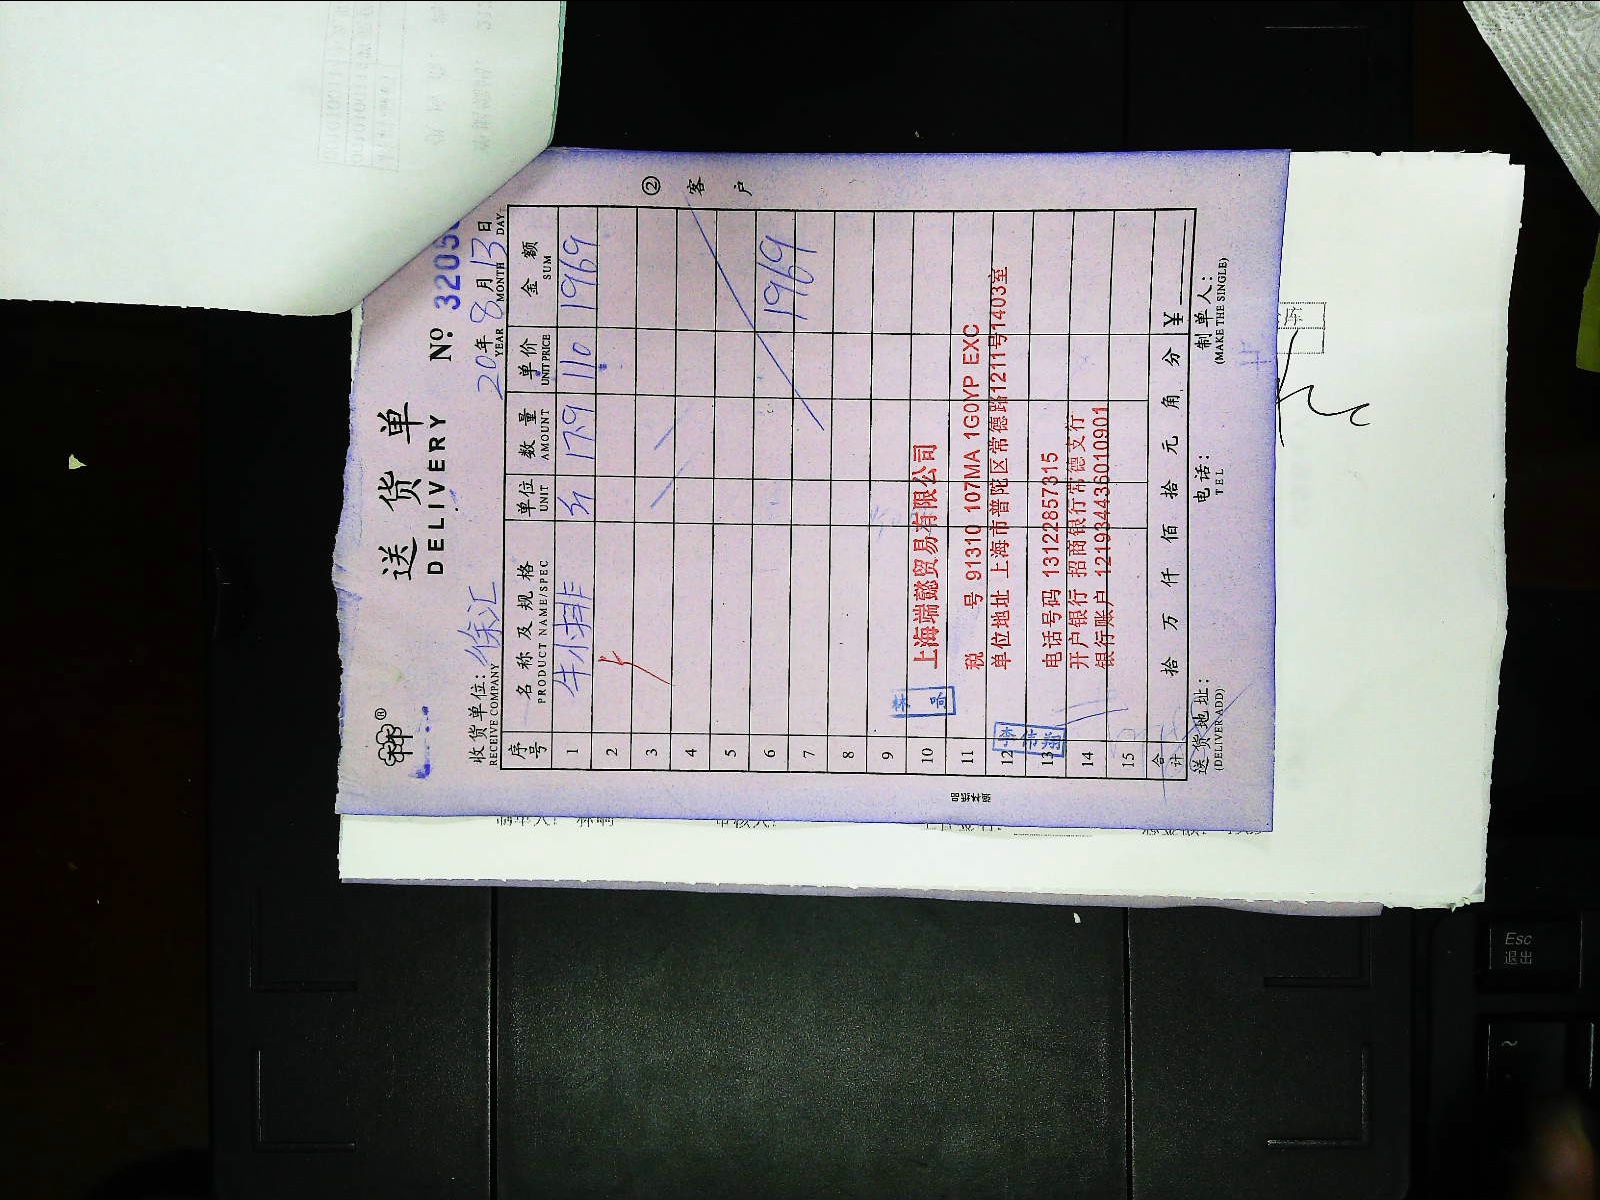 送货单
DELIVERY
No. 3205
收货单位: 徐汇
RECEIVE COMPANY
20年8月13日
YEAR MONTH DAY
序号 名称及规格 单位 数量 单价 金额
PRODUCT NAME/SPEC UNIT AMOUNT UNIT PRICE SUM
1 牛小排 斤 17.9 110 1969
2
3
4
5
6 1969
7
8
9
10 上海端懿贸易有限公司
11 税 号 91310 107MA 1G0YP EXC
12 单位地址 上海市普陀区常德路1211号1403室
13 电话号码 13122857315
14 开户银行 招商银行常德支行
15 银行账户 121934436010901
李伟翔
合计 拾 万 仟 佰 拾 元 角 分 ¥
送货地址: 电话: 制单人:
(DELIVER ADD) TEL (MAKE THE SINGLE)
② 客户
Esc
退出